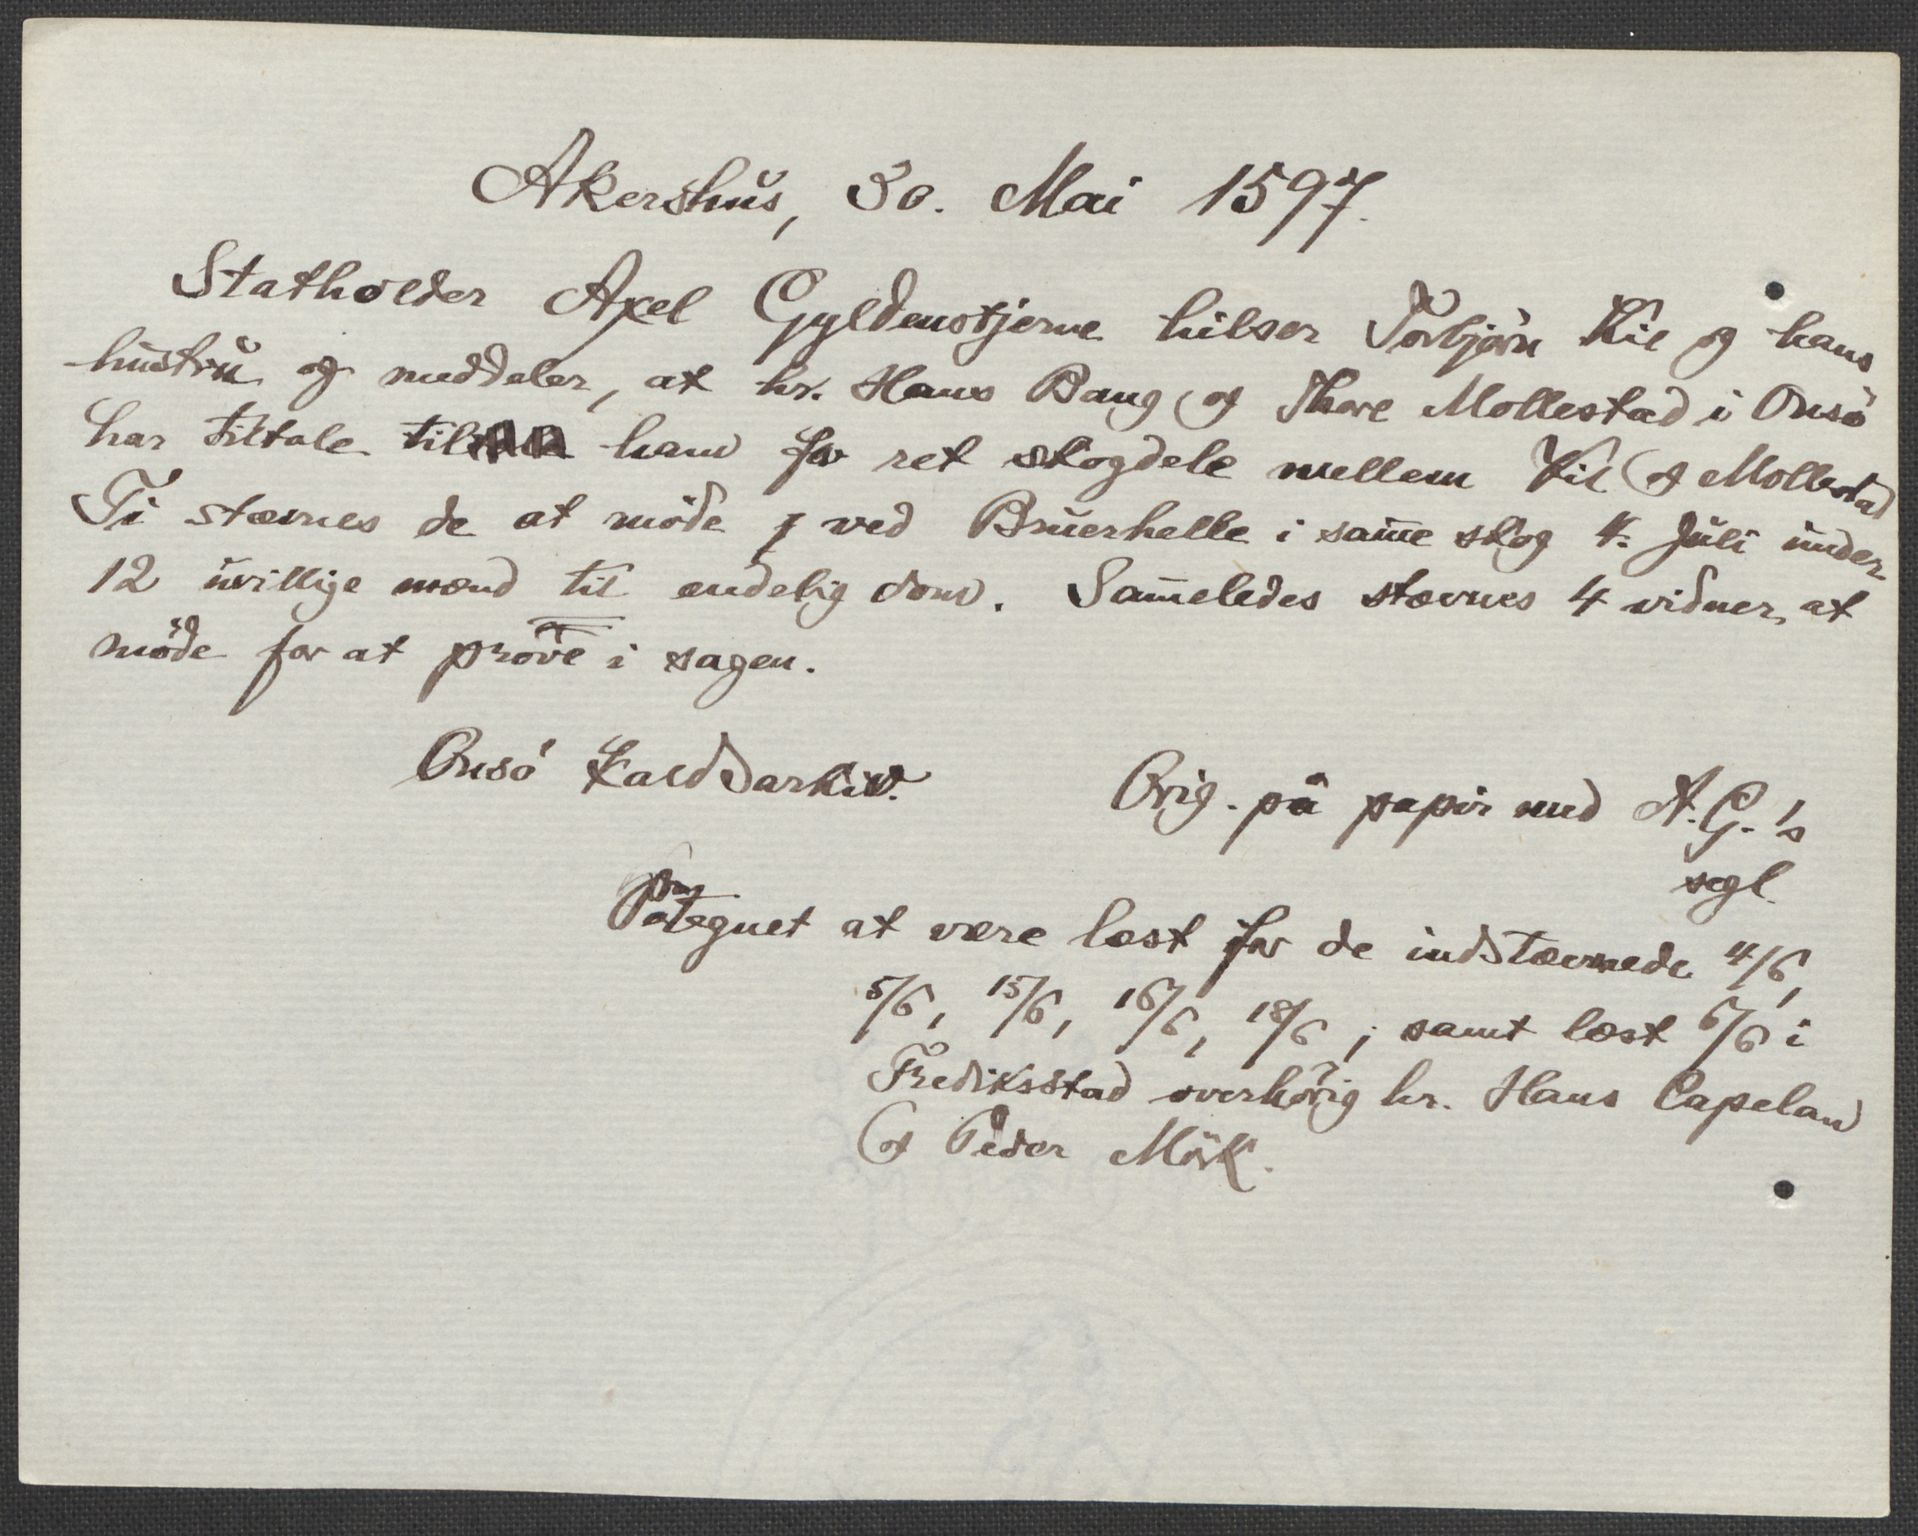 Akershus, 30. Mai 1597.
Statholder Axel Gyldenstjerne hilser Torbjörn Kil og hans
hustru og meddeler, at hr. Hans Bang og Thore Mollestad i Onsö
har tiltale til ham for ret skogdele mellem Kil og Mollestad
Ti stævnes de at möde ved Bruerhelle i sam̄e skog 4. Juli under
12 uvillige mænd til endelig dom. Sam̄eledes stævnes 4 vidner at
möde for at pröve i sagen.
Onsö Kaldsarkiv.
Orig. på papir med A.G.'s
segl.
Påtegnet at være læst for de indstævnede 4/6,
5/6, 15/6, 16/6, 18/6; samt læst 6/6 i
Frediksstad overhörig hr. Hans Capelan
og Peder Mörk.